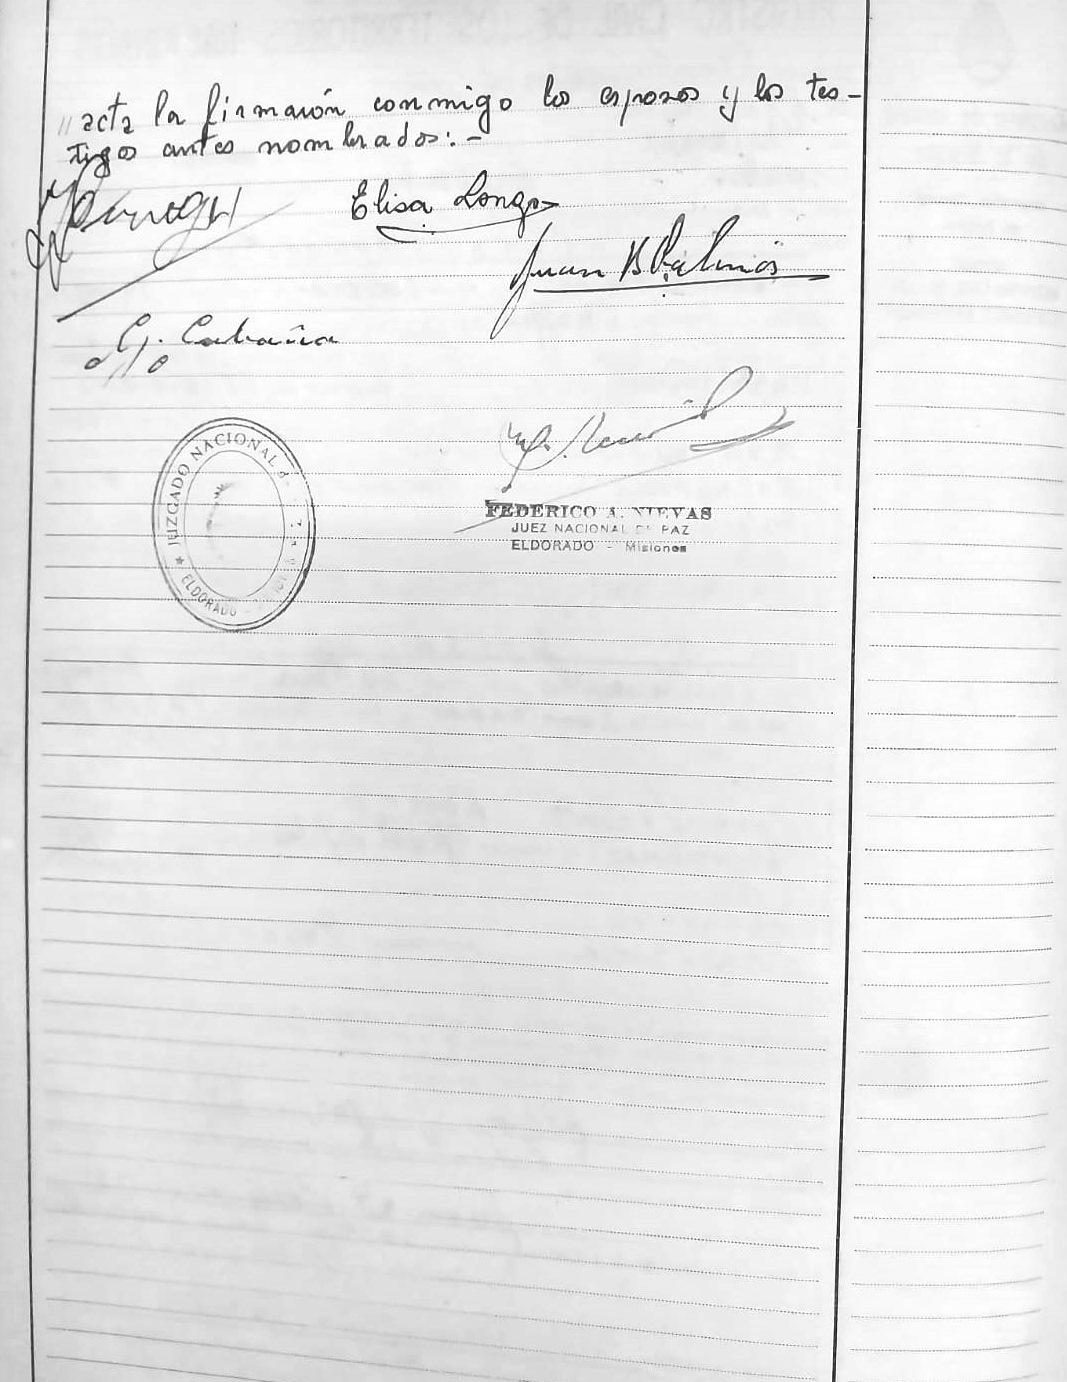 acta la firmaron conmigo los esposos y los tes-
tigos antes nombrados:-
Elisa Longo
Juan B
G. Cabaña
JUZGADO NACIONAL de
ELDORADO
FEDERICO A. NIEVAS
JUEZ NACIONAL DE PAZ
ELDORADO - Misiones